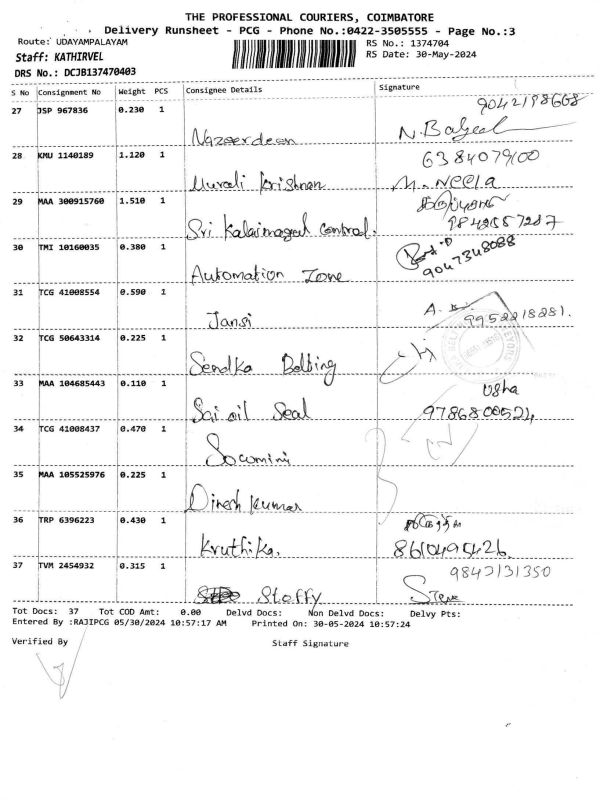 THE PROFESSIONAL COURIERS, COIMBATORE
Delivery Runsheet - PCG - Phone No.:0422-3505555 - Page No.:3
Route: UDAYAMPALAYAM RS No.: 1374704
Staff: KATHIRVEL RS Date: 30-May-2024
DRS No.: DCJB137470403
S No Consignment No Weight PCS Consignee Details Signature
27 JSP 967836 0.230 1 9042198668
Nazeerdeen
28 KMU 1140189 1.120 1 6384079100
Murali Krishnan M. Neela
29 MAA 300915760 1.510 1
Sri Kalaimagal Control. 9842557287
30 TMI 10160035 0.380 1
Automation Zone 9047348088
31 TCG 41008554 0.590 1
Jansi 9952218281.
32 TCG 50643314 0.225 1
Sendka Belting
33 MAA 104685443 0.110 1 Usha
Sai oil Seal 9786800524
34 TCG 41008437 0.470 1
Sowmini
35 MAA 105525976 0.225 1
Dinesh Kumar
36 TRP 6396223 0.430 1
Kruthika. 8610495426
37 TVM 2454932 0.315 1 9842131350
Steffy
Tot Docs: 37 Tot COD Amt: 0.00 Delvd Docs: Non Delvd Docs: Delvy Pts:
Entered By :RAJIPCG 05/30/2024 10:57:17 AM Printed On: 30-05-2024 10:57:24
Verified By Staff Signature